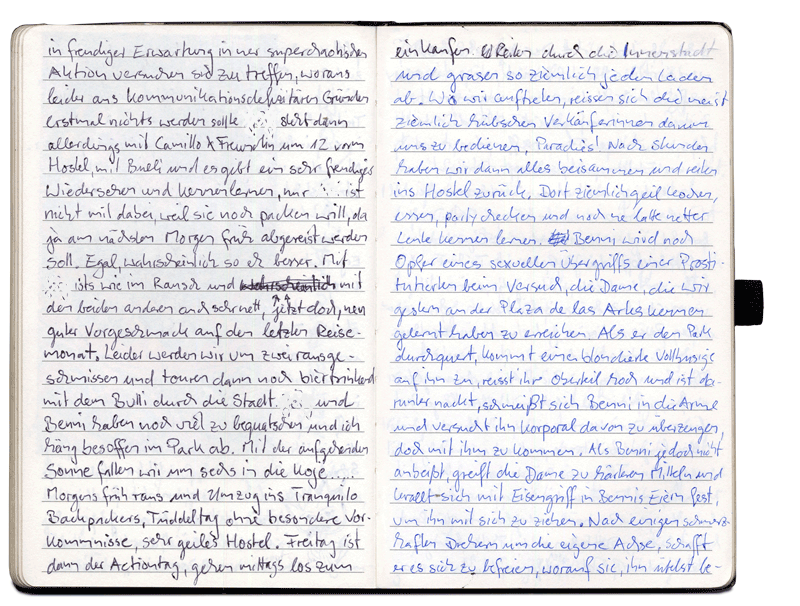 in freudiger Erwartung in ner superchaotischen
Aktion versuchen sich zu treffen, woraus
leider aus kommunikationsdefizitären Gründen
erstmal nichts werden sollte. steht dann
allerdings mit Camillo & Freundin um 12 vorm
Hostel, mit Bulli und es gibt ein sehr freudiges
Wiedersehen und kennenlernen, nur ist
nicht mit dabei, weil sie noch packen will, da
ja am nächsten Morgen früh abgereist werden
soll. Egal, wahrscheinlich so eh besser. Mit
ists wie im Rausch und wahrscheinlich mit
den beiden anderen auch sehr nett, jetzt doch, nen
guter Vorgeschmack auf den letzten Reise-
monat. Leider werden wir um zwei rausge-
schmissen und touren dann noch biertrinkend
mit dem Bulli durch die Stadt. und
Benni haben noch viel zu bequatschen und ich
häng besoffen im Park ab. Mit der aufgehenden
Sonne fallen wir um sechs in die Koje....
Morgens früh raus und Umzug ins Tranquilo
Backpackers, Tüddeltag ohne besondere Vor-
kommnisse, sehr geiles Hostel. Freitag ist
dann der Actiontag, gehen mittags los zum
einkaufen. Reiten durch die Innenstadt
und grasen so ziemlich jeden Laden
ab. Wo wir auftreten, reissen sich die meist
ziemlich hübschen Verkäuferinnen darum
uns zu bedienen, Paradies! Nach Stunden
haben wir dann alles beisammen und reiten
ins Hostel zurück. Dort ziemlich geil kochen,
essen, party checken und noch ne Latte netter
Leute kennen lernen. Benni wird noch
Opfer eines sexuellen Übergriffs einer Prosti-
tuierten beim Versuch, die Dame, die wir
gestern an der Plaza de las Artes kennen
gelernt haben zu erreichen. Als er den Park
durchquert, kommt eine blondierte Vollbusige
auf ihn zu, reisst ihr Oberteil hoch und ist da-
runter nackt, schmeißt sich Benni in die Arme
und versucht ihn korporal davon zu überzeugen,
doch mit ihm zu kommen. Als Benni jedoch nicht
anbeißt, greift die Dame zu härteren Mitteln und
krallt sich mit Eisengriff in Bennis Eiern fest,
um ihn mit sich zu ziehen. Nach einigen schmerz-
haften Drehern um die eigene Achse, schafft
er es sich zu befreien, worauf sie, ihn übelst be-